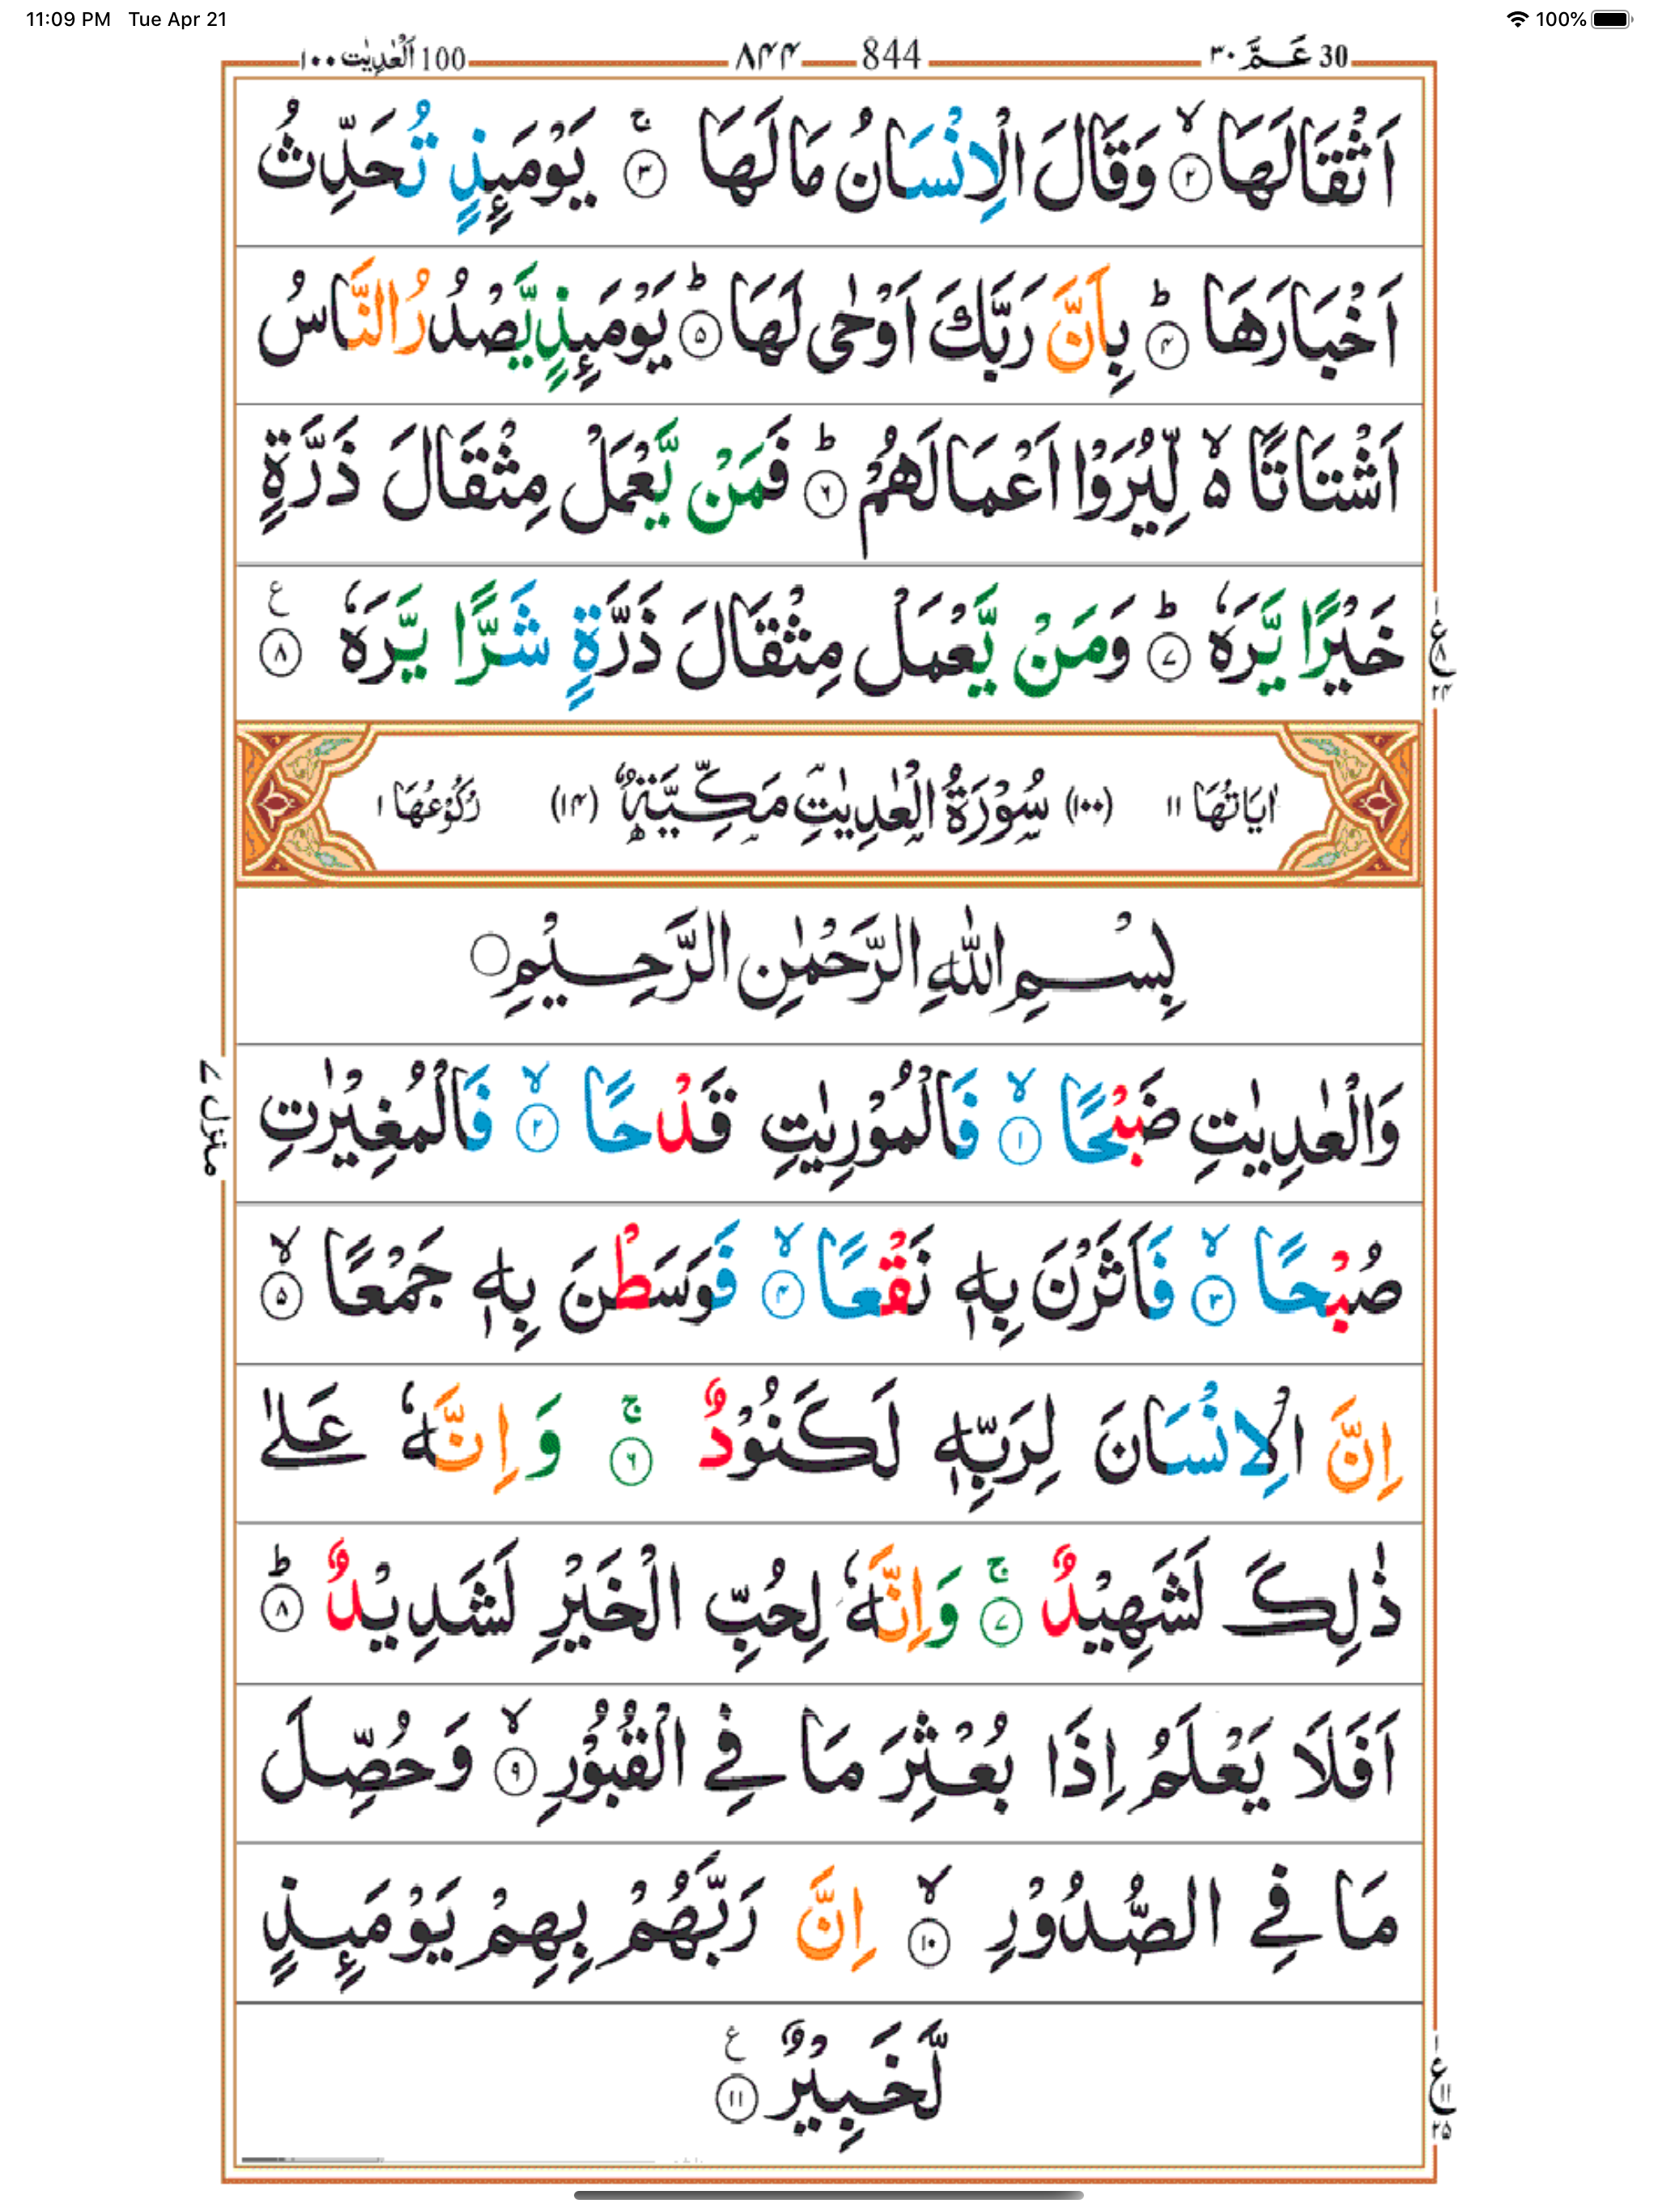 11:09 PM Tue Apr 21 100%
30 عَـمَّ ٣٠ 844 ٨٤٤ 100 اَلْعٰدِیٰت ١٠٠
اَثْقَالَهَا ۙ‏ ﴿۲﴾ وَقَالَ الْاِنْسَانُ مَا لَهَا ۚ‏ ﴿۳﴾ يَوْمَئِذٍ تُحَدِّثُ
اَخْبَارَهَا ؕ‏ ﴿۴﴾ بِاَنَّ رَبَّكَ اَوْحٰى لَهَا ؕ‏ ﴿۵﴾ يَوْمَئِذٍ يَّصْدُرُ النَّاسُ
اَشْتَاتًا ۙ۬ لِّيُرَوْا اَعْمَالَهُمْ ؕ‏ ﴿۶﴾ فَمَنْ يَّعْمَلْ مِثْقَالَ ذَرَّةٍ
خَيْرًا يَّرَهٗ ؕ‏ ﴿۷﴾ وَمَنْ يَّعْمَلْ مِثْقَالَ ذَرَّةٍ شَرًّا يَّرَهٗ ﴿۸﴾ ع
١ ع ٨ ٢٤
اٰيَاتُهَا ١١ (١٠٠) سُوْرَةُ الْعٰدِيٰتِ مَكِّيَّةٌ (١٤) رُكُوْعُهَا ١
بِسْمِ اللّٰهِ الرَّحْمٰنِ الرَّحِيْمِ
وَالْعٰدِيٰتِ ضَبْحًا ۙ‏ ﴿۱﴾ فَالْمُوْرِيٰتِ قَدْحًا ۙ‏ ﴿۲﴾ فَالْمُغِيْرٰتِ
منزل ٧
صُبْحًا ۙ‏ ﴿۳﴾ فَاَثَرْنَ بِهٖ نَقْعًا ۙ‏ ﴿۴﴾ فَوَسَطْنَ بِهٖ جَمْعًا ۙ‏ ﴿۵﴾
اِنَّ الْاِنْسَانَ لِرَبِّهٖ لَكَنُوْدٌ ۚ‏ ﴿۶﴾ وَاِنَّهٗ عَلٰى
ذٰلِكَ لَشَهِيْدٌ ۚ‏ ﴿۷﴾ وَاِنَّهٗ لِحُبِّ الْخَيْرِ لَشَدِيْدٌ ؕ‏ ﴿۸﴾
اَفَلَا يَعْلَمُ اِذَا بُعْثِرَ مَا فِى الْقُبُوْرِ ۙ‏ ﴿۹﴾ وَحُصِّلَ
مَا فِى الصُّدُوْرِ ۙ‏ ﴿۱۰﴾ اِنَّ رَبَّهُمْ بِهِمْ يَوْمَئِذٍ
لَّخَبِيْرٌ ﴿۱۱﴾ ع
١ ع ١١ ٢٥